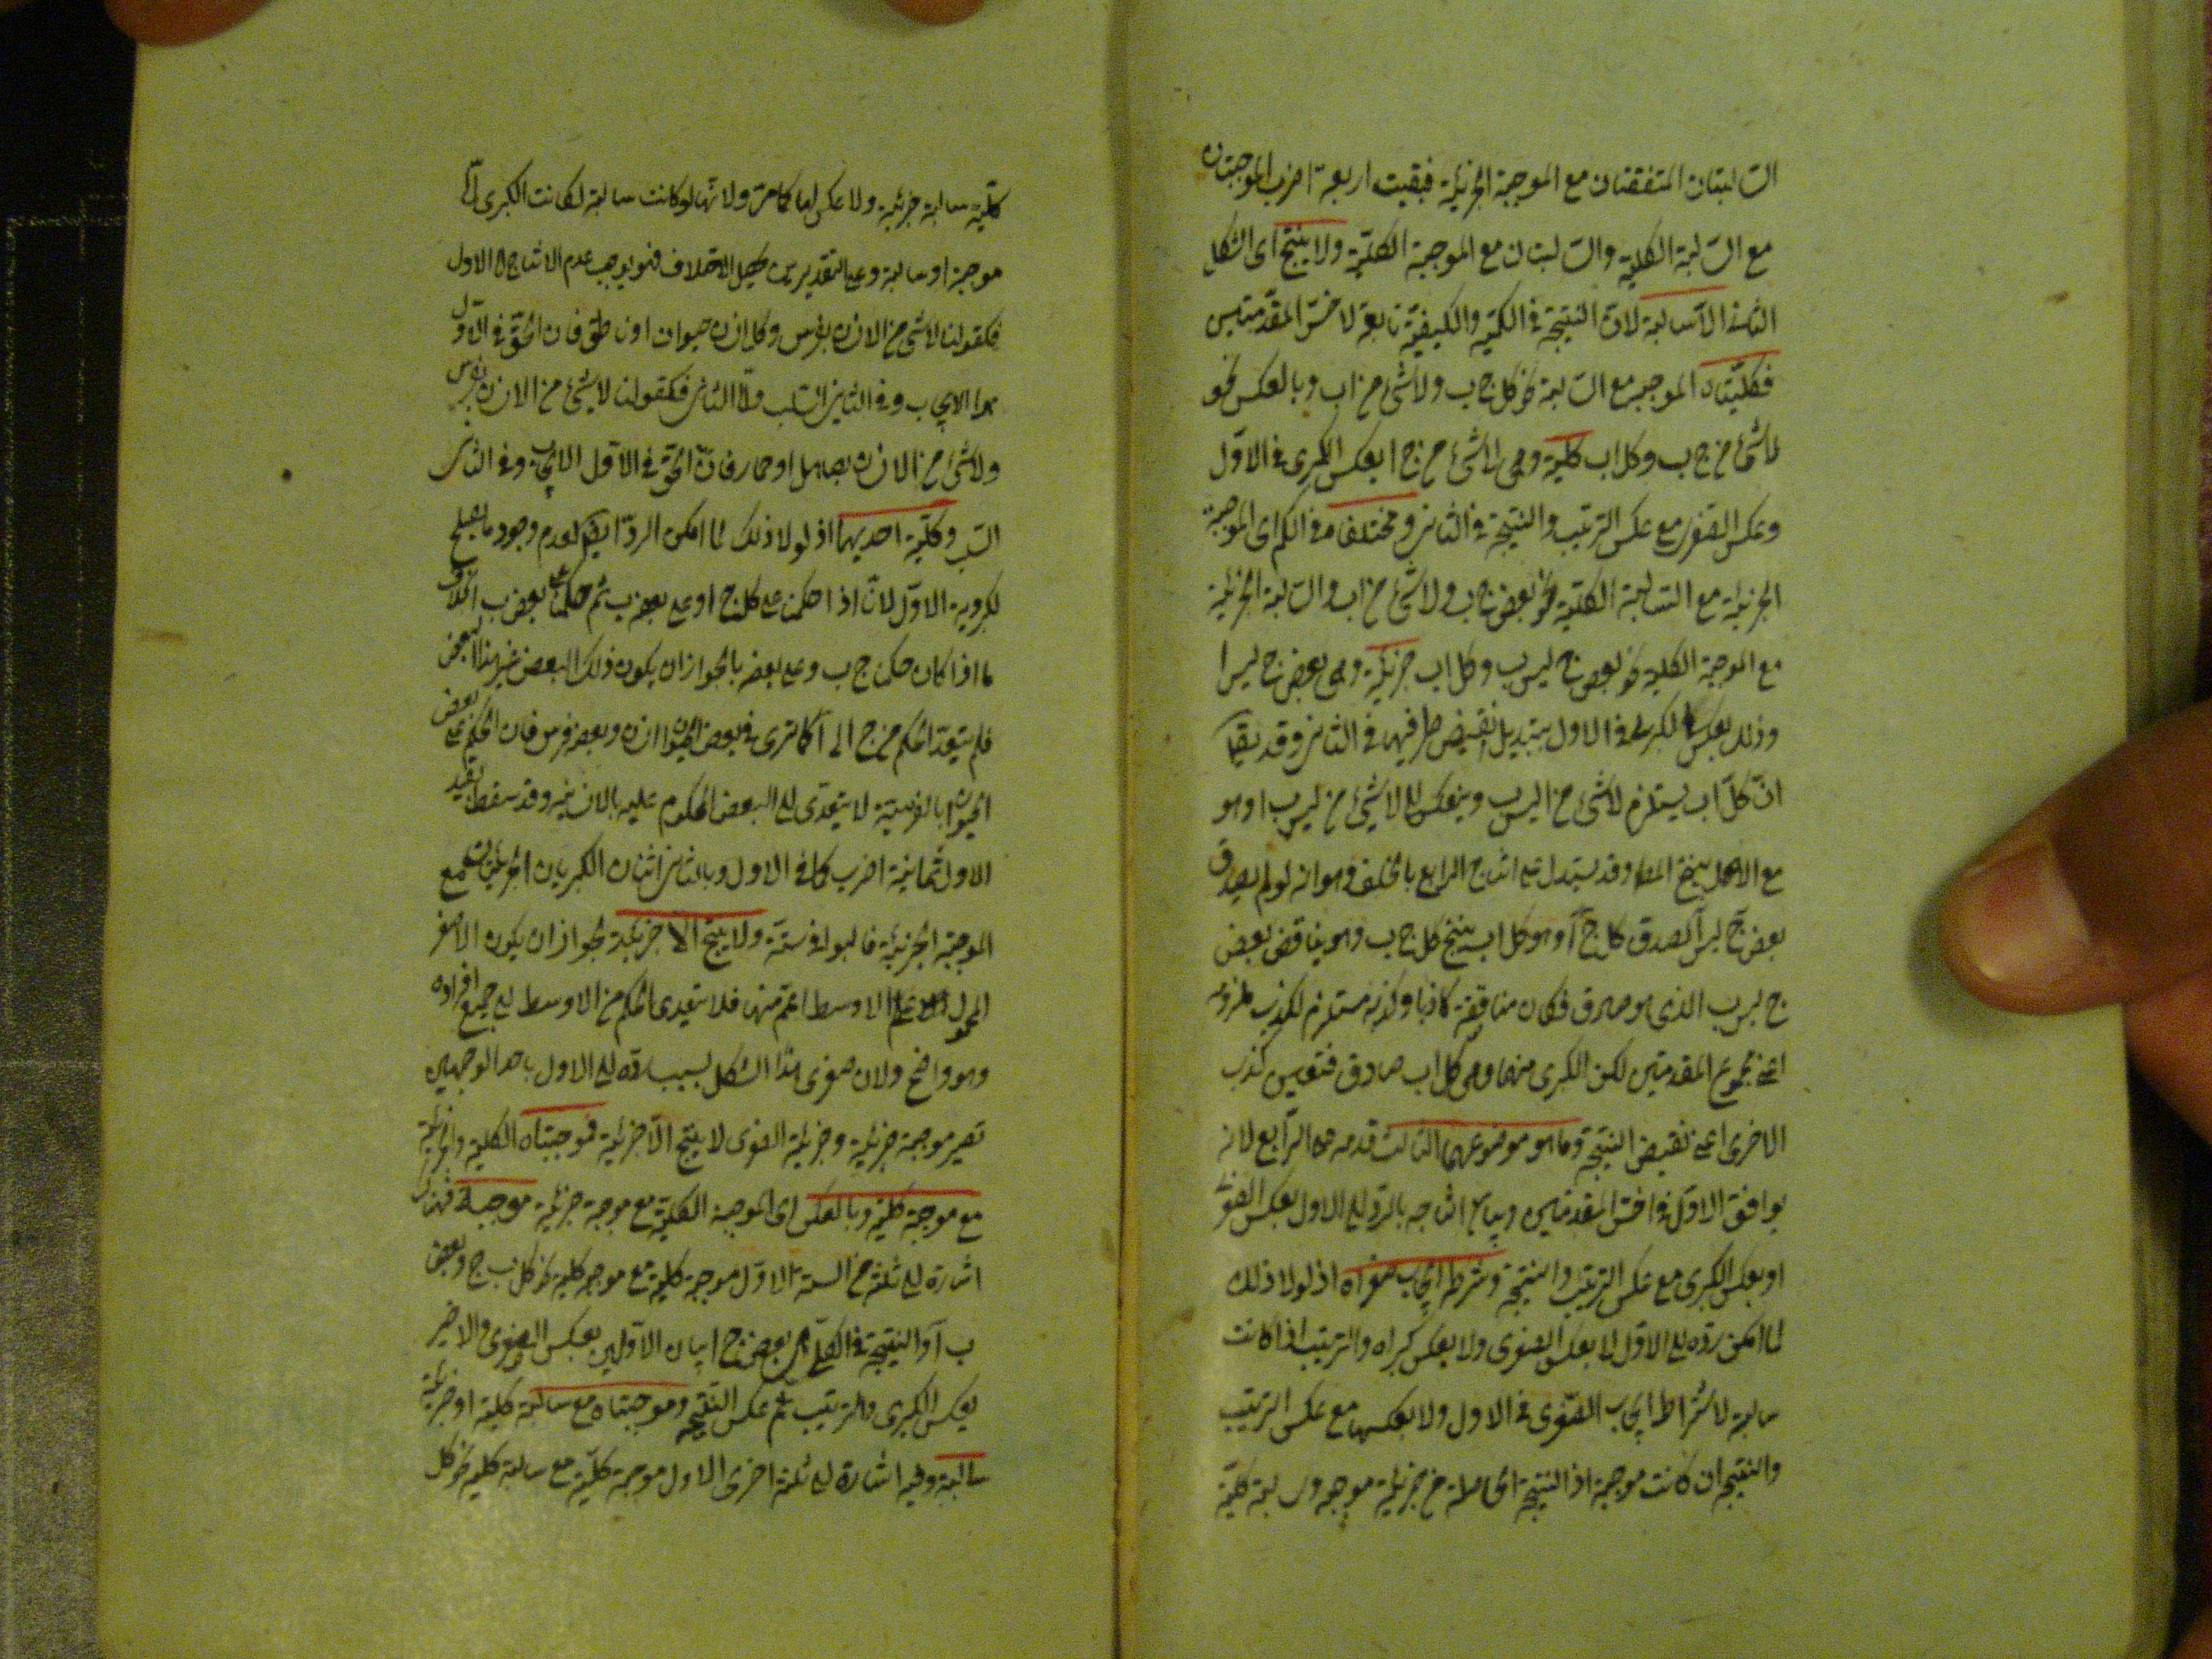 السالبتان المتفقتان مع الموجبة الجزئية فبقيت اربعة اضرب الموجبتان
مع السالبة الكلية والسالبتان مع الموجبة الكلية ولا ينتج اى الشكل
الثانى الا سالبة لان النتيجة فى الكمية والكيفية تابعة لاخس المقدمتين
فكليتاه الموجبة مع السالبة نحو كل ج ب ولا شئ من ا ب وبالعكس نحو
لا شئ من ج ب وكل ا ب كلية وهى لا شئ من ج ا بعكس الكبرى فى الاول
وعكس الصغرى مع عكس الترتيب والنتيجة فى الثانى ومختلفتاه فى الكم اى الموجبة
الجزئية مع السالبة الكلية نحو بعض ج ب ولا شئ من ا ب والسالبة الجزئية
مع الموجبة الكلية نحو بعض ج ليس ب وكل ا ب جزئية وهى بعض ج ليس ا
وذلك بعكس الكبرى فى الاول بتبديل نقيض طرفيها فى الثانى وقد يقال
ان كل ا ب يستلزم لا شئ من ا ليس ب وينعكس الى لا شئ من ليس ب ا وهو
مع الاصل ينتج المط وقد يستدل على انتاج الرابع بالخلف وهو انه لو لم يصدق
بعض ج ليس ا لصدق كل ج ا وهو كل ا ب ينتج كل ج ب وهو يناقض بعض
ج ليس ب الذى هو صادق فكان مناقضه كاذبا وكذبه مستلزم لكذب ملزومه
اعنى مجموع المقدمتين لكن الكبرى منهما وهى كل ا ب صادق فتعين كذب
الاخرى اعنى نقيض النتيجة وما هو موضوعهما الثالث قدمه على الرابع لانه
يوافق الاول فى اخس المقدمتين وبيان انتاجه بالرد الى الاول بعكس الصغرى
او بعكس الكبرى مع عكس الترتيب والنتيجة وشرطه ايجاب صغراه اذ لولا ذلك
لما امكن رده الى الاول لا بعكس الصغرى ولا بعكس كبراه والترتيب اذا كانت
سالبة لاشتراط ايجاب الصغرى فى الاول ولا بعكسها مع عكس الترتيب
والنتيجة ان كانت موجبة اذ النتيجة الحاصلة من جزئية موجبة وسالبة كلية
كلية سالبة جزئية ولا عكس لها كما مر ولانها لو كانت سالبة لكانت الكبرى اما
موجبة او سالبة وعلى التقديرين يحصل الاختلاف فهو يوجب عدم الانتاج اما الاول
فكقولنا لا شئ من الانسان بفرس وكل انسان حيوان او ناطق فان الحق فى الاول
هو الايجاب وفى الثانى السلب واما الثانى فكقولنا لا شئ من الانسان بفرس
ولا شئ من الانسان بصهال او حمار فان الحق فى الاول الايجاب وفى الثانى
السلب وكلية احديهما اذ لولا ذلك لما امكن الرد ايضا لعدم وجود ما يصلح
لكبروية الاول لان اذا حكمنا على كل ج او على بعض ب ثم حكمنا على بعض ب
ما اذا كان حكمن ج ب وعلى بعض با لجواز ان يكون ذلك البعض غير هذا البعض
فلم يتعد الحكم من ج الى ا كما ترى فى بعض الحيوان انسان وبعضه فرس فان الحكم على بعض
الحيوان بالفرسية لا يتعدى الى البعض المحكوم عليه بالانسانية وقد سقط بقيد
الاول ثمانية اضرب كما فى الاول وبالثانى اثنان الكبريان الجزئيتان مع
الموجبة الجزئية فالبواقى ستة ولا ينتج الا جزئية لجواز ان يكون الاصغر
المحمول على الاوسط اعم منه فلا يتعدى الحكم من الاوسط الى جميع افراده
وهو واضح ولان صغرى هذا الشكل بسبب رده الى الاول باحد الوجهين
تصير موجبة جزئية وجزئية الصغرى لا ينتج الا جزئية فموجبتاه الكلية والجزئية
مع موجبة كلية وبالعكس اى الموجبة الكلية مع موجبة جزئية موجبة فهذا
اشارة الى ثلثة من الستة الاول موجبة كلية مع موجبة كلية نحو كل ب ج وبعض
ب ا والنتيجة فى الكل بعض ج ا بيان الاولين بعكس الصغرى والاخير
بعكس الكبرى والترتيب ثم عكس النتيجة وموجبتاه مع سالبة كلية او جزئية
سالبة وفيه اشارة الى ثلثة اخرى الاول موجبة كلية مع سالبة كلية نحو كل